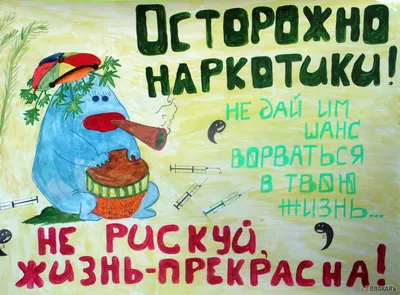 ОСТОРОЖНО
НАРКОТИКИ!
НЕ ДАЙ ИМ
ШАНС
ВОРВАТЬСЯ
В ТВОЮ
ЖИЗНЬ...
НЕ РИСКУЙ,
ЖИЗНЬ-ПРЕКРАСНА!
ЯПЛАКАЛЪ